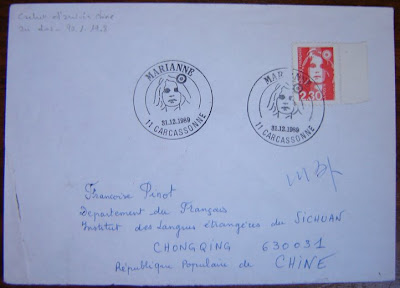 MARIANNE
31.12.1989
11 CARCASSONNE
MARIANNE
31.12.1989
11 CARCASSONNE
2,30
Francoise Pinot
Département du Français
Institut des Langues étrangères du SICHUAN
CHONGQING 630031
République Populaire de CHINE